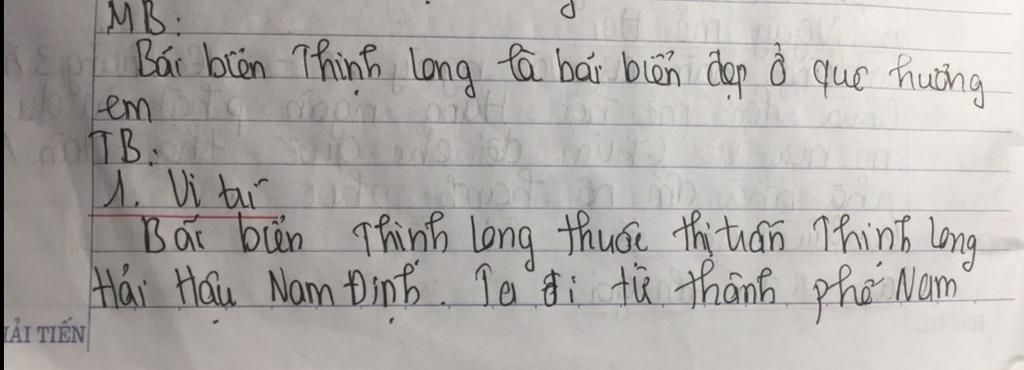 MB:
Bái biển Thịnh Long là bái biển đẹp ở quê hương
em
TB:
1. Vi tư
Bãi biển Thinh Long thuốc thị trấn Thinh Long
Hải Hậu Nam Định. Ta đi từ thành phố Nam
IẢI TIẾN